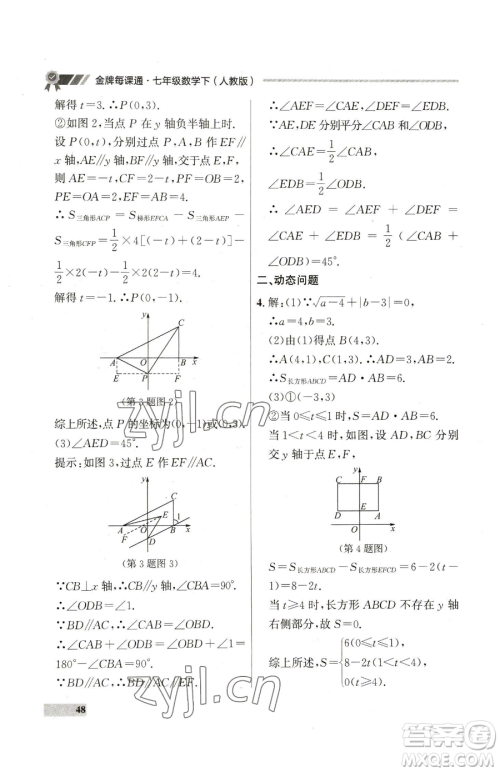 金牌每课通·七年级数学下(人教版)
解得 t=3.∴P(0,3).
②如图2,当点P在y轴负半轴上时.
设P(0,t),分别过点P,A,B作EF∥
x轴,AE∥y轴,BF∥y轴,交于点E,F,
则AE=-t,CF=2-t,EF=AB=4,
PE=OA=2,EP=OB=2.
∴S三角形ACP=S梯形EFCA-S三角形AEP-
S三角形CFP=1/2×4[(-t)+(2-t)]-
1/2×2(-t)-1/2×2(2-t)=4.
解得 t=-1.∴P(0,-1).
y
C
A O B x
E P F
(第3题图2)
综上所述,点P的坐标为(0,-1)或(0,3).
(3)∠AED=45°.
提示:如图3,过点E作EF∥AC.
y
C
E
A O B x
F D
(第3题图3)
∵CB⊥x轴,∴∠CBA=90°.
∴∠ODB=∠1.
∵BD∥AC,∴∠CAB=∠OBD.
∴∠CAB+∠ODB=∠CAB+∠1=
180°-∠CBA=90°.
∵BD∥AC,EF∥AC,∴BD∥EF.
∴∠AEF=∠CAE,∠DEF=∠EDB.
∵AE,DE分别平分∠CAB和∠ODB,
∴∠CAE=1/2∠CAB,
∠EDB=1/2∠ODB.
∴∠AED=∠AEF+∠DEF=
∠CAE+∠EDB=1/2(∠CAB+
∠ODB)=45°.
二、动态问题
4.解:(1)∵√a-4+|b-3|=0,
∴a=4,b=3.
(2)由(1)得点B(4,3).
∴A(4,1),C(1,3),D(1,1).
∴S长方形ABCD=AB·AD=6.
(3)①(1,3)
②当0≤t≤1时,S=S长方形ABCD=6.
当1<t<4时,如图,设AD,BC分别
交y轴于点E,F.
y
C F B
D E A
O x
(第4题图)
S=S长方形ABCD-S长方形EFCD=6-2(t-
1)=8-2t.
当t≥4时,长方形ABCD不在y轴
右侧部分,故S=0.
综上所述,S={6(0≤t≤1),
8-2t(1<t<4),
0(t≥4).
48
zyjl.cn
zyjl.cn
答案圈
MXQE.COM